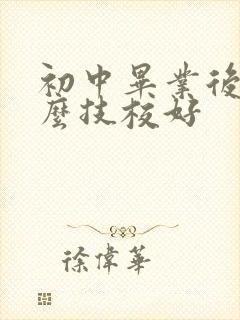 初中畢業後
麼技校好
徐偉華